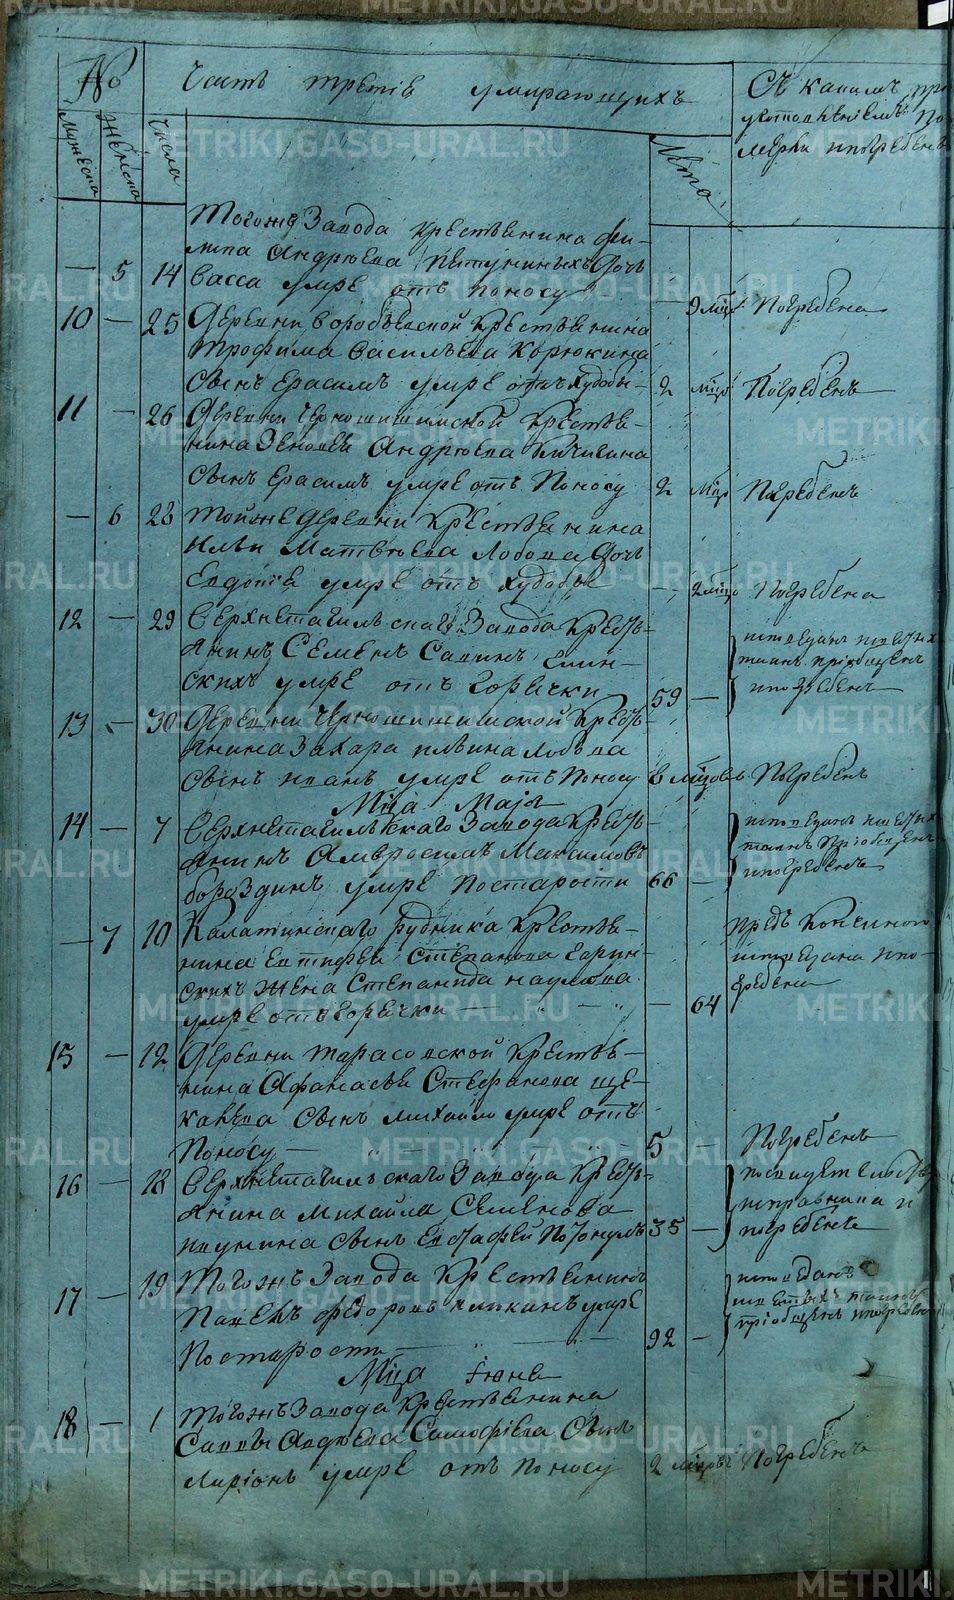 № Часть третiя умирающихъ
Съ какимъ
Мужеска Женска Числа Лѣта
Тогожъ Завода крестьянина Фи-
липа Андрѣева Петуниныхъ Дочь
— 5 14 Васса умре отъ поносу 9 мцъ Погребена
10 — 25 Деревни Воробьевской крестьянина
Трофима Васильева Корюкина
Сынъ Ерасимъ умре отъ худобы 2 мцъ Погребенъ
11 — 26 Деревни Черношишимской крестья-
нина Андрѣева
Сынъ Ерасимъ умре отъ поносу 2 мцъ Погребенъ
— 6 28 Тойже деревни крестьянина
Ильи Матвѣева Лобова Дочь
Евдокiя умре отъ худобы 2 мцъ Погребена
12 — 29 Верхнетагильскаго Завода крест-
янинъ Семенъ Савинъ
умре отъ горячки 59 — исповеданъ святыхъ
таинъ прiобщенъ
и погребенъ
13 — 30 Деревни Черношишимской крест-
янина Захара Ильина Лобова
Сынъ Иванъ умре отъ поносу 6 мцовъ Погребенъ
Мца Маiя
14 — 7 Верхнетагильскаго Завода крест-
янинъ Амвросимъ Максимовъ
Бороздинъ умре по старости 66 — исповеданъ святыхъ
таинъ прiобщенъ
и погребенъ
— 7 10 Калатинскаго рудника крестья-
нина Евтифея Степанова
жена Степанида Наумова
умре отъ горячки — 64
предъ кончиною
исповедана и по-
гребена
15 — 12 Деревни Тарасовской крестья-
нина Афанасья Стефанова Ще-
канева Сынъ Михайло умре отъ
поносу — 5 — Погребенъ
16 — 18 Верхнетагильскаго Завода крест-
янина Михайла Семенова
Сынъ Евстафей потонулъ 35 — по свидетельству
исправника и
погребенъ
17 — 19 Тогожъ Завода крестьянинъ
Павелъ Федоровъ умре
по старости — 92 — исповеданъ
святыхъ таинъ
прiобщенъ и погребенъ
Мца Iюня
18 — 1 Тогожъ Завода крестьянина
Саввы Андрѣева Сынъ
Ларiонъ умре отъ поносу 2 мцовъ Погребенъ
METRIKI.GASO-URAL.RU